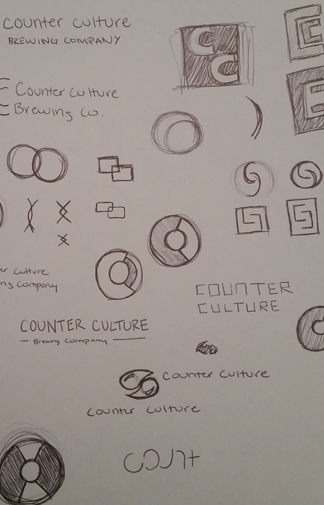 Counter Culture
BREWING COMPANY
Counter Culture
Brewing Co.
Culture
Company
COUNTER
CULTURE
COUNTER CULTURE
Brewing Company
Counter Culture
Counter Culture
COUNT